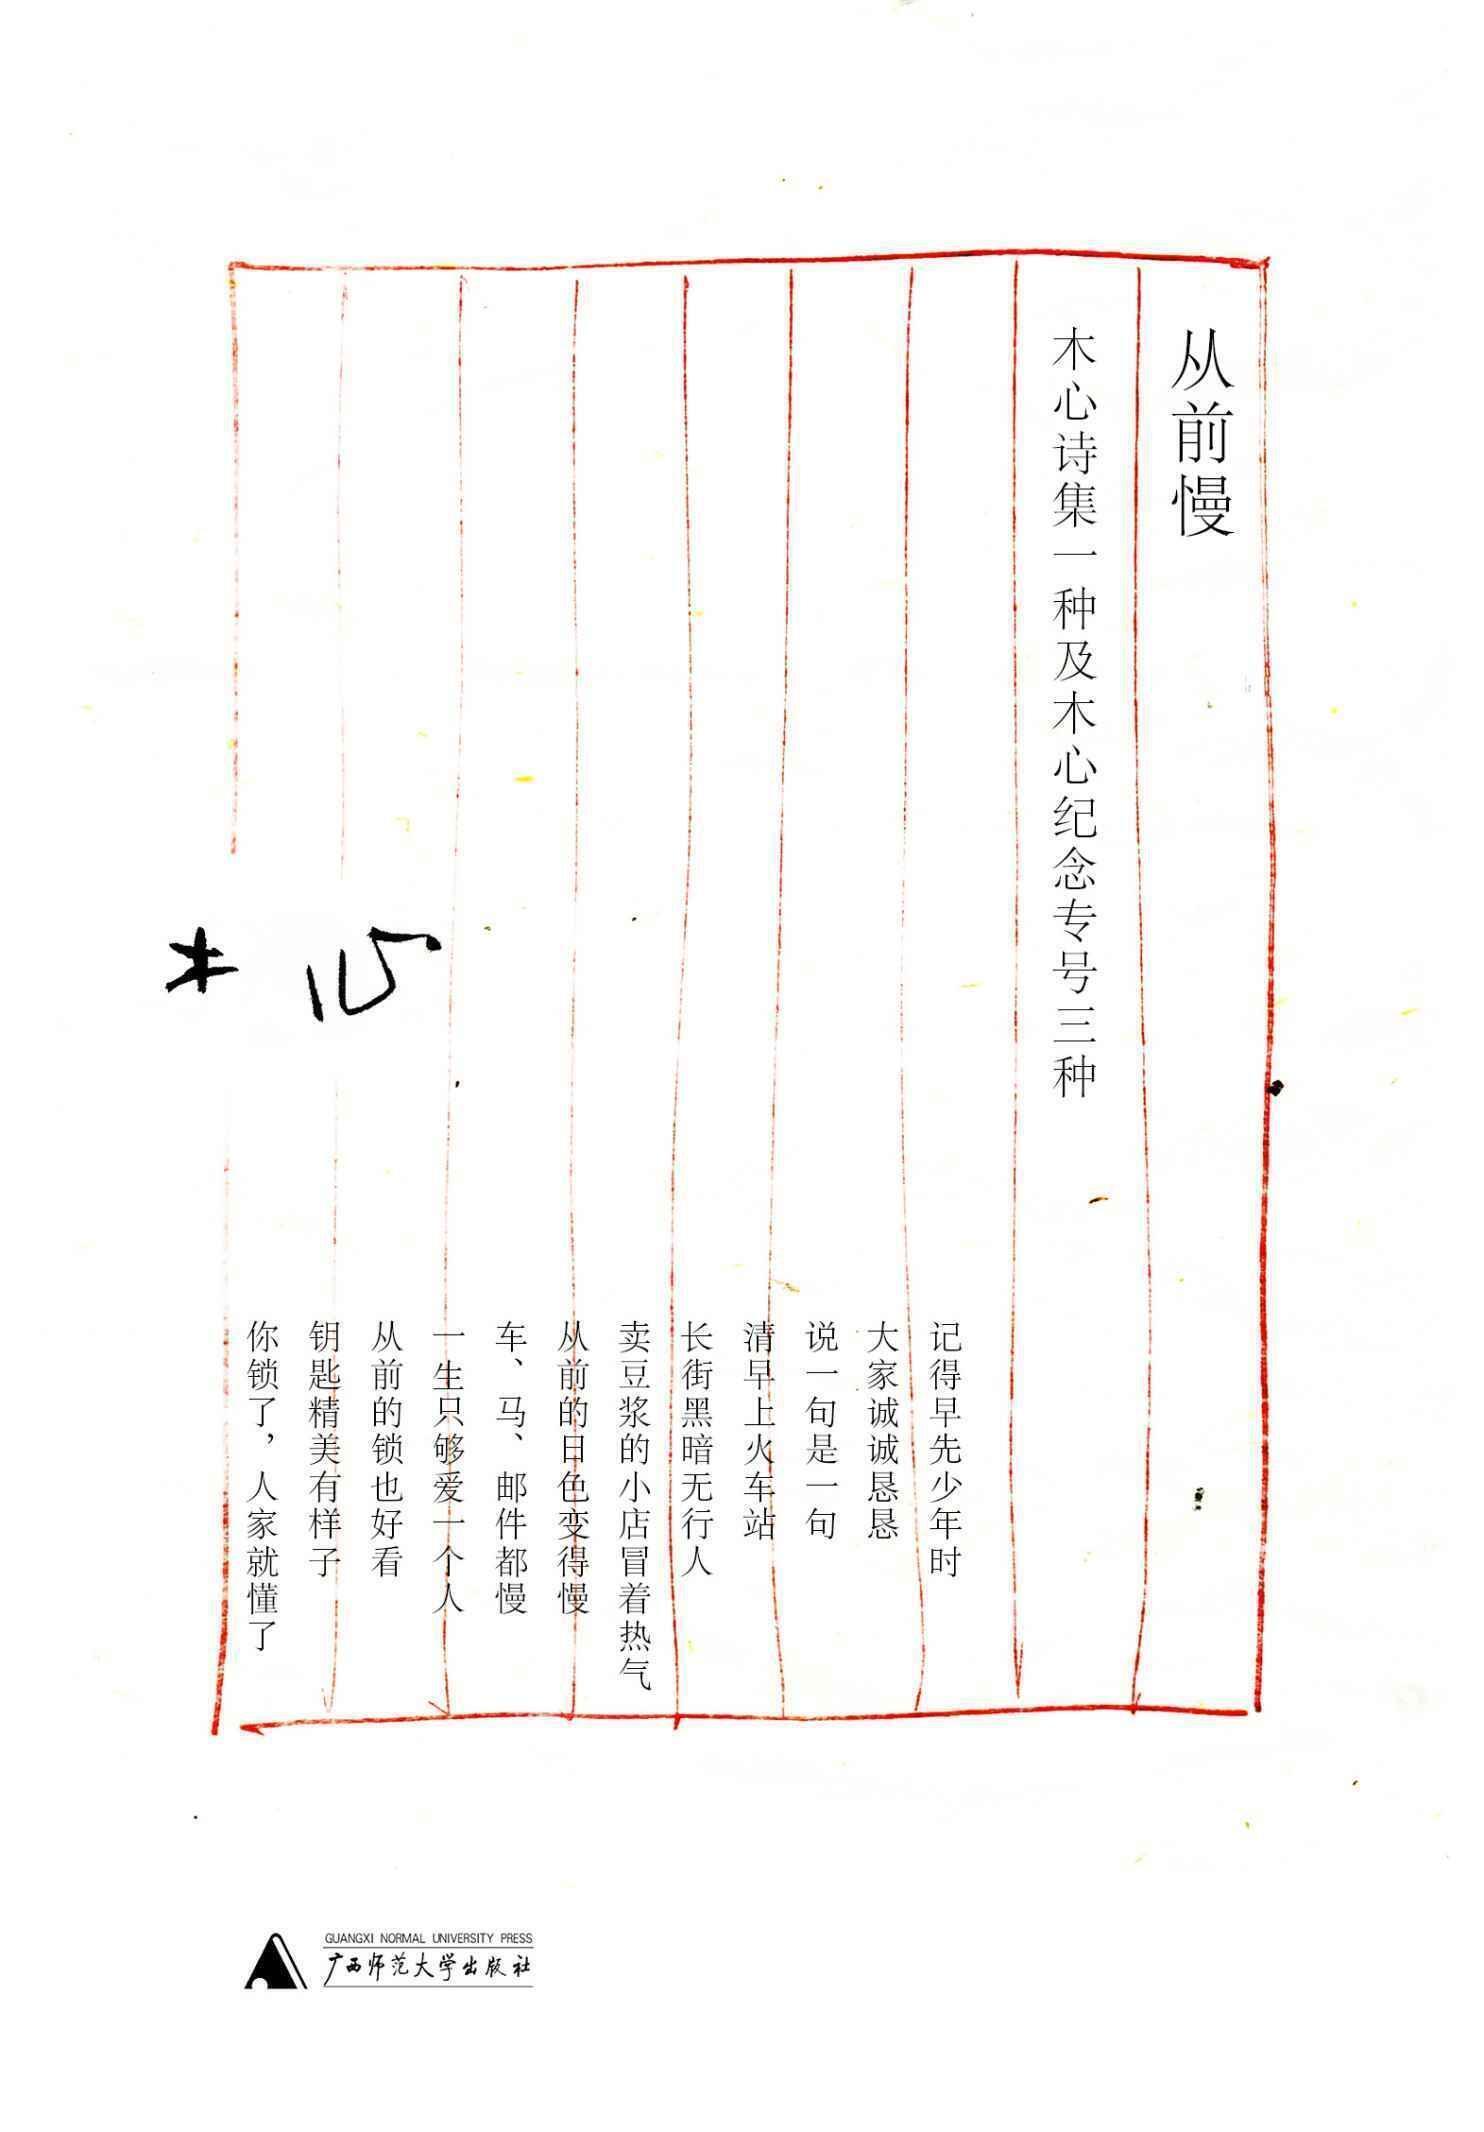 从前慢
木心诗集一种及木心纪念专号三种
记得早先少年时
大家诚诚恳恳
说一句是一句
清早上火车站
长街黑暗无行人
卖豆浆的小店冒着热气
从前的日色变得慢
车、马、邮件都慢
一生只够爱一个人
从前的锁也好看
钥匙精美有样子
你锁了，人家就懂了
木心
GUANGXI NORMAL UNIVERSITY PRESS
广西师范大学出版社